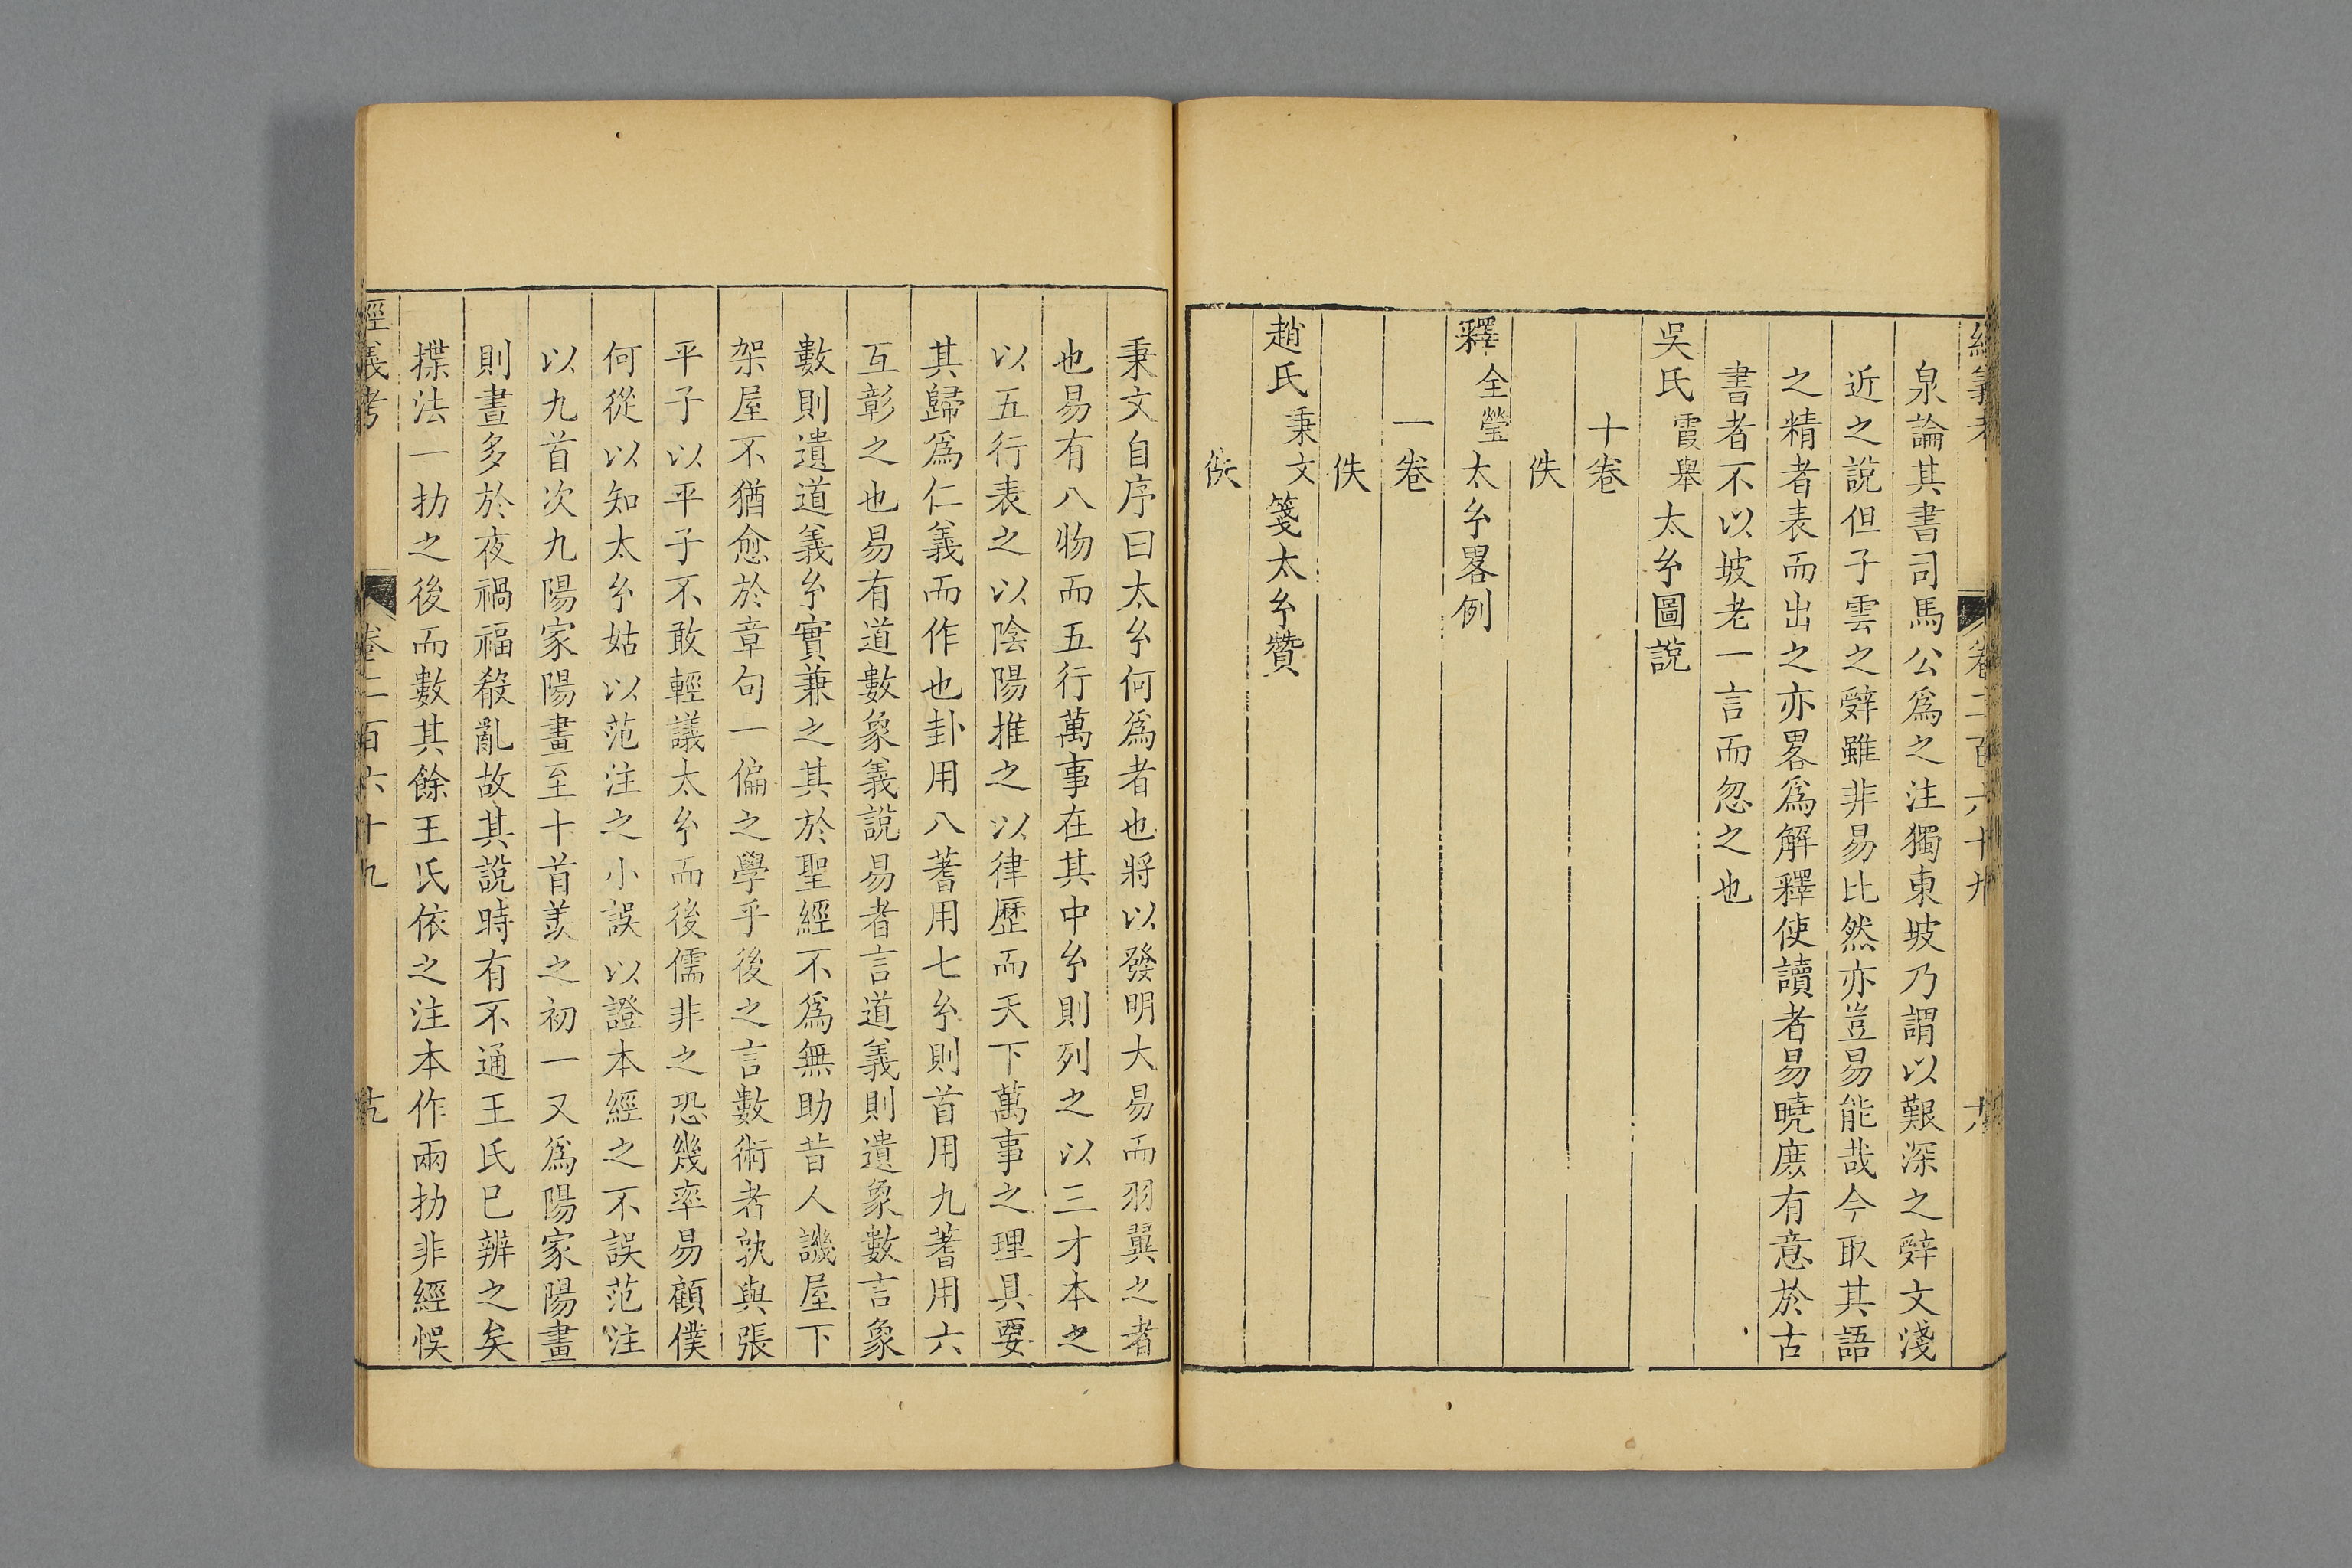 經義考 卷二百六十九
泉論其書司馬公爲之注獨東坡乃謂以艱深之辤文淺
近之說但子雲之辤雖非易比然亦豈易能哉今取其語
之精者表而出之亦畧爲解釋使讀者易曉庻有意於古
書者不以坡老一言而忽之也
吳氏霞舉太𤣥圖說
十卷
佚
釋全瑩太𤣥畧例
一卷
佚
趙氏秉文箋太𤣥贊
佚
秉文自序曰太𤣥何爲者也將以發明大易而羽翼之者
也易有八物而五行萬事在其中𤣥則列之以三才本之
以五行表之以陰陽推之以律歷而天下萬事之理具要
其歸爲仁義而作也卦用八蓍用七𤣥則首用九蓍用六
互彰之也易有道數象義說易者言道義則遺象數言象
數則遺道義𤣥實兼之其於聖經不爲無助昔人譏屋下
架屋不猶愈於章句一偏之學乎後之言數術者孰與張
平子以平子不敢輕議太𤣥而後儒非之恐幾率易顧僕
何從以知太𤣥姑以范注之小誤以證本經之不誤范注
以九首次九陽家陽畫至十首羙之初一又爲陽家陽畫
則晝多於夜禍福殽亂故其說時有不通王氏已辨之矣
揲法一扐之後而數其餘王氏依之注本作兩扐非經悞
經義考 卷二百六十九